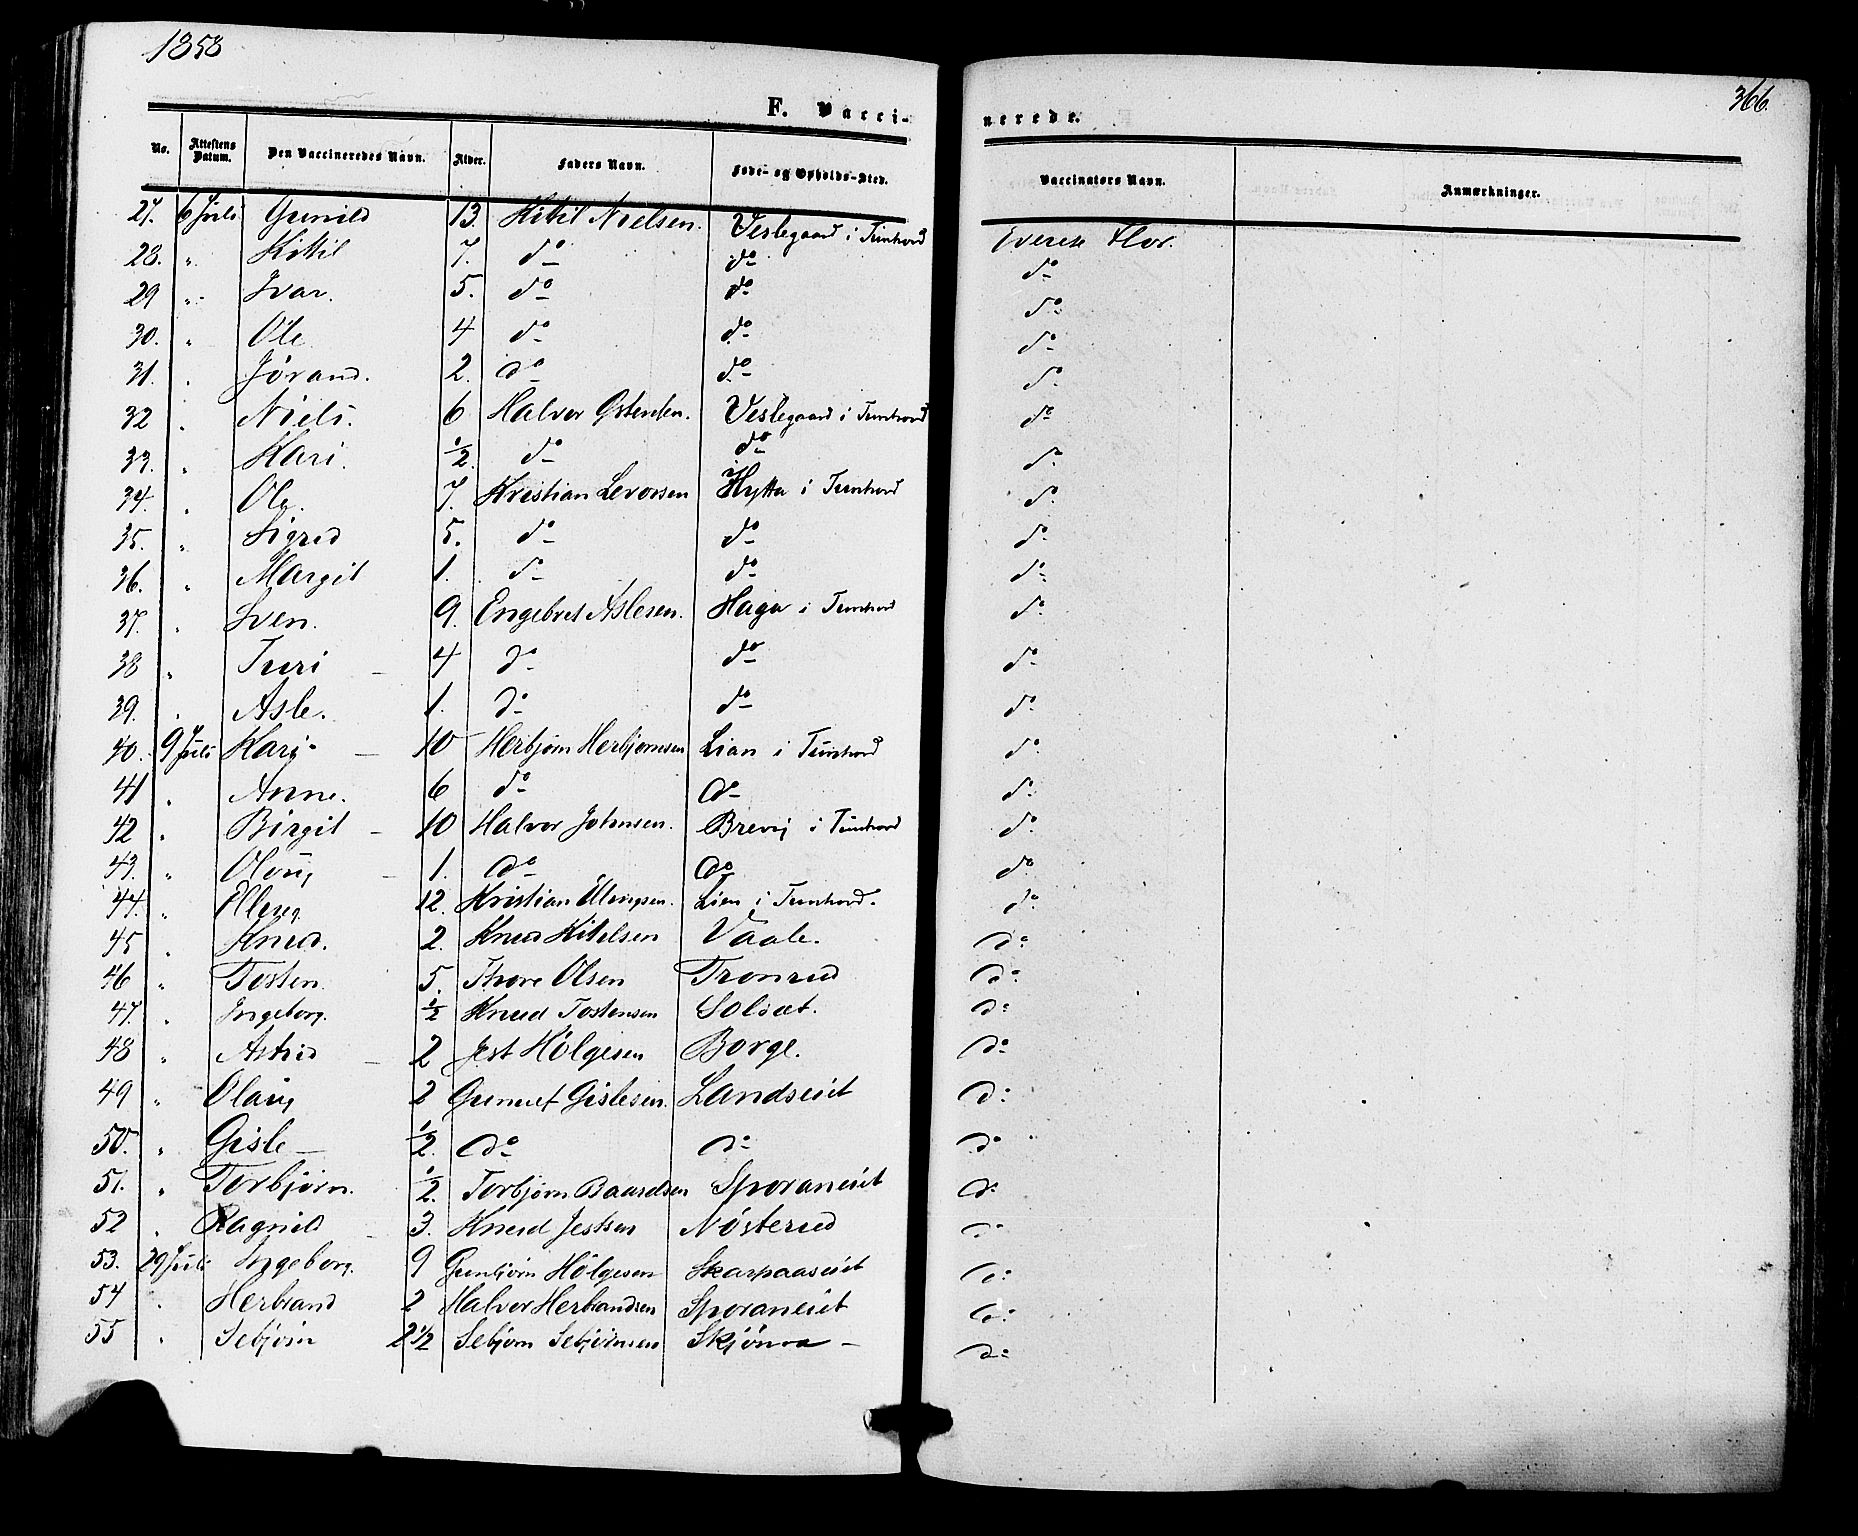 1858
366.
F. Vacci-
nerede.
No. Attestens Datum. Den Vaccineredes Navn. Alder. Faders Navn. Føde- og Opholds-Sted. Vaccinators Navn. Anmærkninger.
27. 6 Juli Gunild 13. Kitil Nielsen. Veslegaard i Tunhovd Flor.
28. " Kitil 7. do do do
29 " Ivar. 5. do do do
30. " Ole 4 do do do
31. " Jørand. 2. do do do
32 " Niels. 6 Halvor Ostensen. Veslegaard i Tunhovd do
33. " Kari. 1/2 do do do
34. " Ole. 7. Kristian Levorsen Hytta i Tunhovd do
35. " Sigrid 5. do do do
36. " Margit 1. do do do
37. " Sven. 9. Engebret Aslesen. Haga i Tunhovd do
38 " Turi 4 do do do
39. " Asle. 1. do do do
40. 9 Juli Kari 10 Herbjørn Herbjørnsen Lian i Tunhovd do
41 " Anne. 6 do do do
42 " Birgit 10 Halvor Johnsen. Brevig i Tunhovd do
43. " Oloug 1. do do do
44. " Elling 12. Kristian Ellingsen. Lien i Tunhovd. do
45 " Knud. 2. Knud Kitelsen Vaale. do
46 " Tosten 5. Thore Olsen Tronrud do
47. " Ingeborg. 1/2 Knud Tostensen Soldat. do
48 " Astrid 2 Jest Hølgesen Borge. do
49 " Olaug 2 Gunulf Gislesen. Landseiet do
50. " Gisle 1/2. do do do
51. " Torbjørn. 1/2. Torbjørn Baardsen Sporaneiet do
52 " Ragnild 3. Knud Jestsen Nøsterud do
53. 29 Juli Ingeborg. 9 Gunbjørn Hølgesen Skarpaaseiet do
54 " Herbrand 2 Halvor Herbrandsen Sporaneiet do
55 " Sebjørn 2 1/2 Sebjørn Sebjørnsen Skjønna do